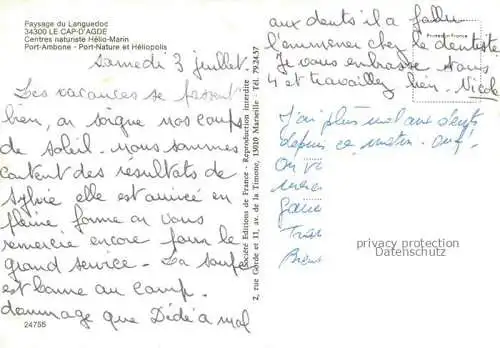 Paysage du Languedoc
34300 LE CAP-D'AGDE
Centres naturiste Hélio-Marin
Port-Ambone - Port-Nature et Héliopolis
Samedi 3 juillet.
Les vacances se passent
bien, on soigne nos coups
de soleil. Nous sommes
content des résultats de
Sylvie elle est arrivée en
pleine forme on vous
remercie encore pour le
grand service. La soupe
est bonne au camp.
dommage que Dédé a mal
24755
Société Editions de France - Reproduction Interdite
2, rue Gardé et 11, av. de la Timone, 13010 Marseille - Tél. 79.24.57
aux dents il a fallu
l'emmener chez le dentiste
Je vous embrasse tous
4 et travaillez bien. Nicole
Printed in France
J'ai plus mal aux dents
depuis ce matin. ouf!
On v
merc
privacy protection
Datenschutz